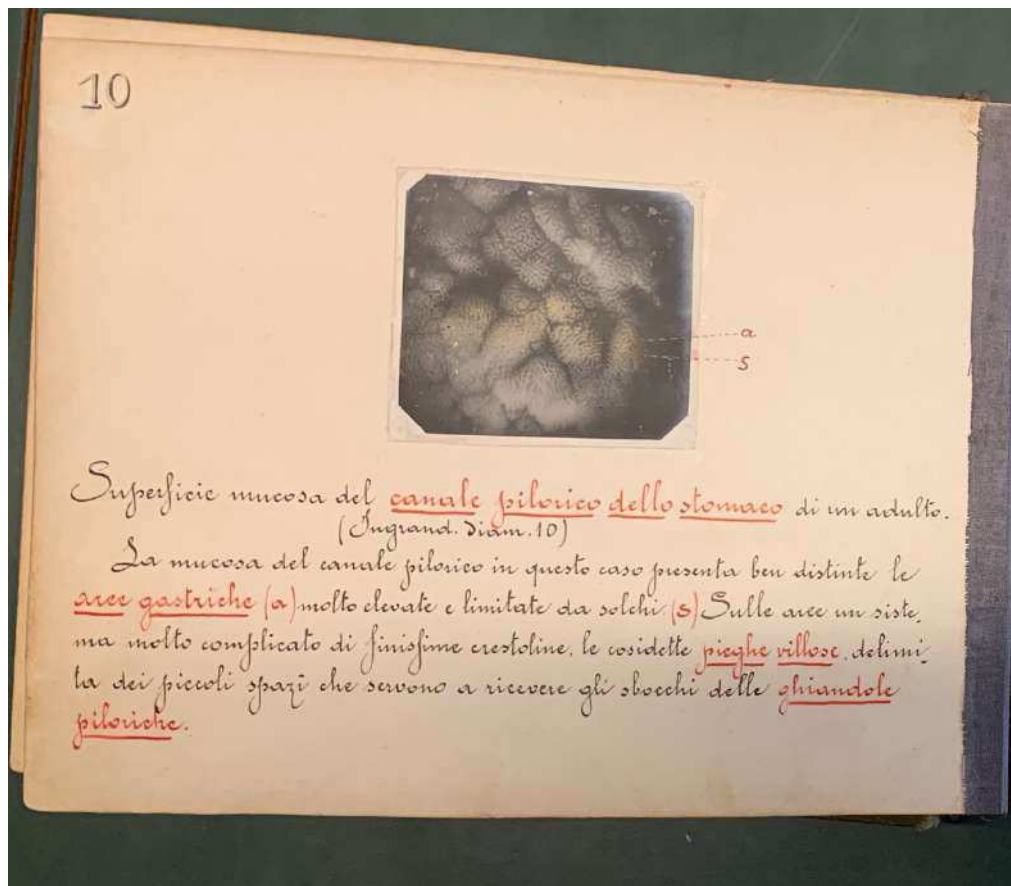 10
a
s
Superficie mucosa del canale pilorico dello stomaco di un adulto.
(Ingrand. Diam. 10)
La mucosa del canale pilorico in questo caso presenta ben distinte le
aree gastriche (a) molto elevate e limitate da solchi (s) Sulle aree un siste-
ma molto complicato di finissime crestoline, le cosidette pieghe villose, delimi-
ta dei piccoli spazî che servono a ricevere gli sbocchi delle ghiandole
piloriche.